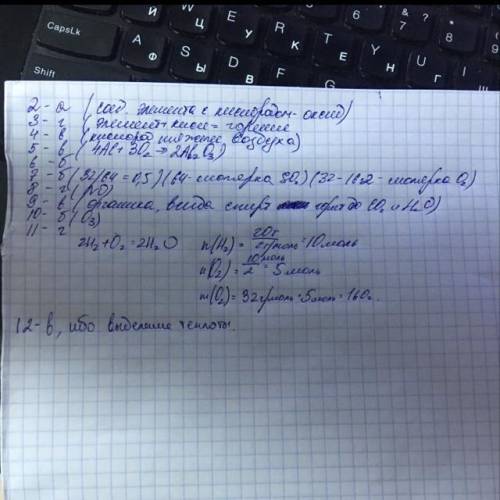 CapsLk
Shift
2 - а (соед. элемента с кислородом - оксид)
3 - г (элемент + кисл = горение
4 - в (кислород тяжелее воздуха)
5 - в (4Al + 3O₂ → 2Al₂O₃)
6 - б
7 - б (32/64 = 0,5) (64 - молярка SO₂) (32 - молярка O₂)
8 - г
9 - в (органика, всегда горит до CO₂ и H₂O)
10 - б (O₃)
11 - г
2H₂ + O₂ = 2H₂O n(H₂) = 20г / 2г/моль = 10 моль
n(O₂) = 10моль / 2 = 5 моль
m(O₂) = 32г/моль · 5моль = 160г
12 - в, ибо выделение теплоты.